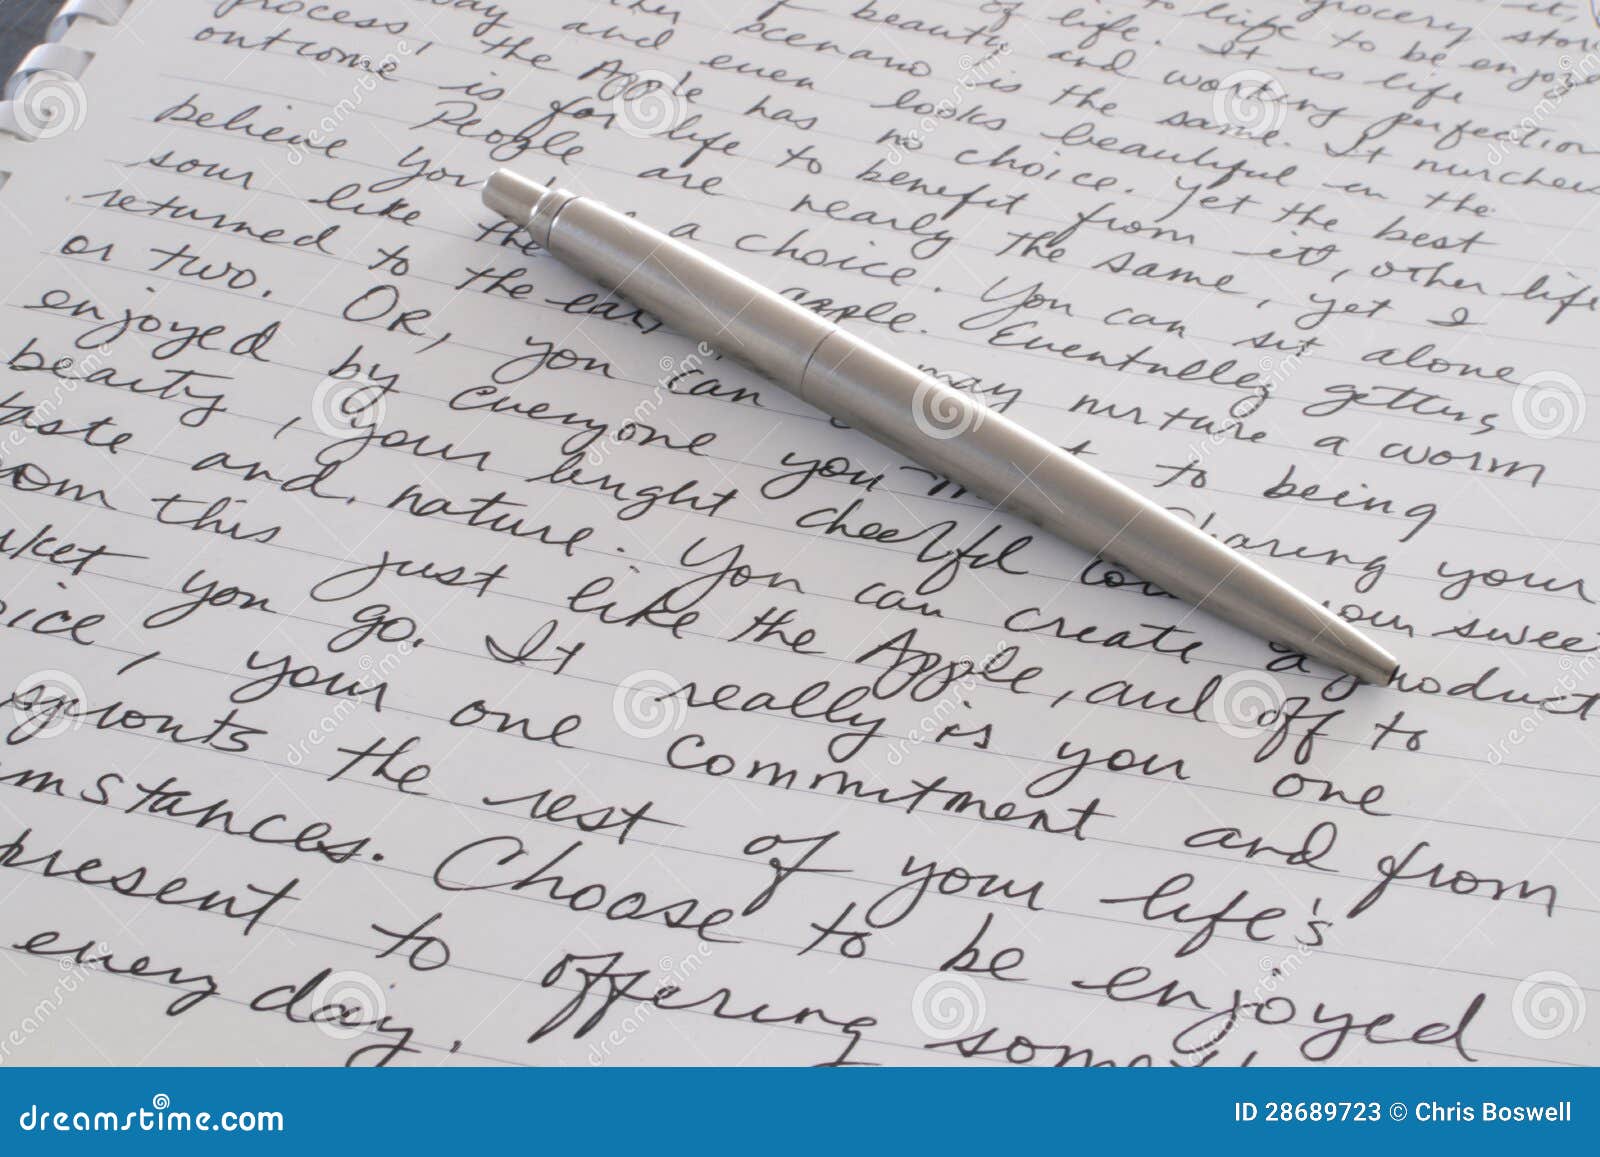 grocery store
to life to be enjoyed
of life. It is life
of beauty and working perfection
scenario is the same. It nurchers
way and even looks beautiful in the
process, the Apple has no choice. Yet the best
outcome is for life to benefit from it, other life
People are nearly the same, yet I
believe you a choice. You can sit alone
sour like the apple. Eventually getting
returned to the earth, may nurture a worm
or two. OR, you can to being
enjoyed by everyone you Sharing your
beauty, your bright cheerful your sweet
taste and nature. You can create a product
from this just like the Apple, and off to
market you go. It really is you one
choice, your one commitment and from
sprouts the rest of your life's
circumstances. Choose to be enjoyed
present to offering
every day.
dreamstime.com
ID 28689723 © Chris Boswell